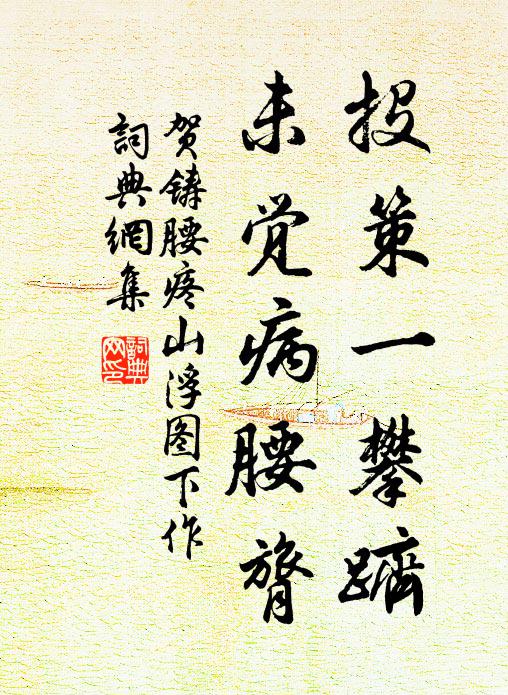 投策一攀躋
未觉病腰膂
贺铸腰疼山浮图下作
詞典網集
詞典網印